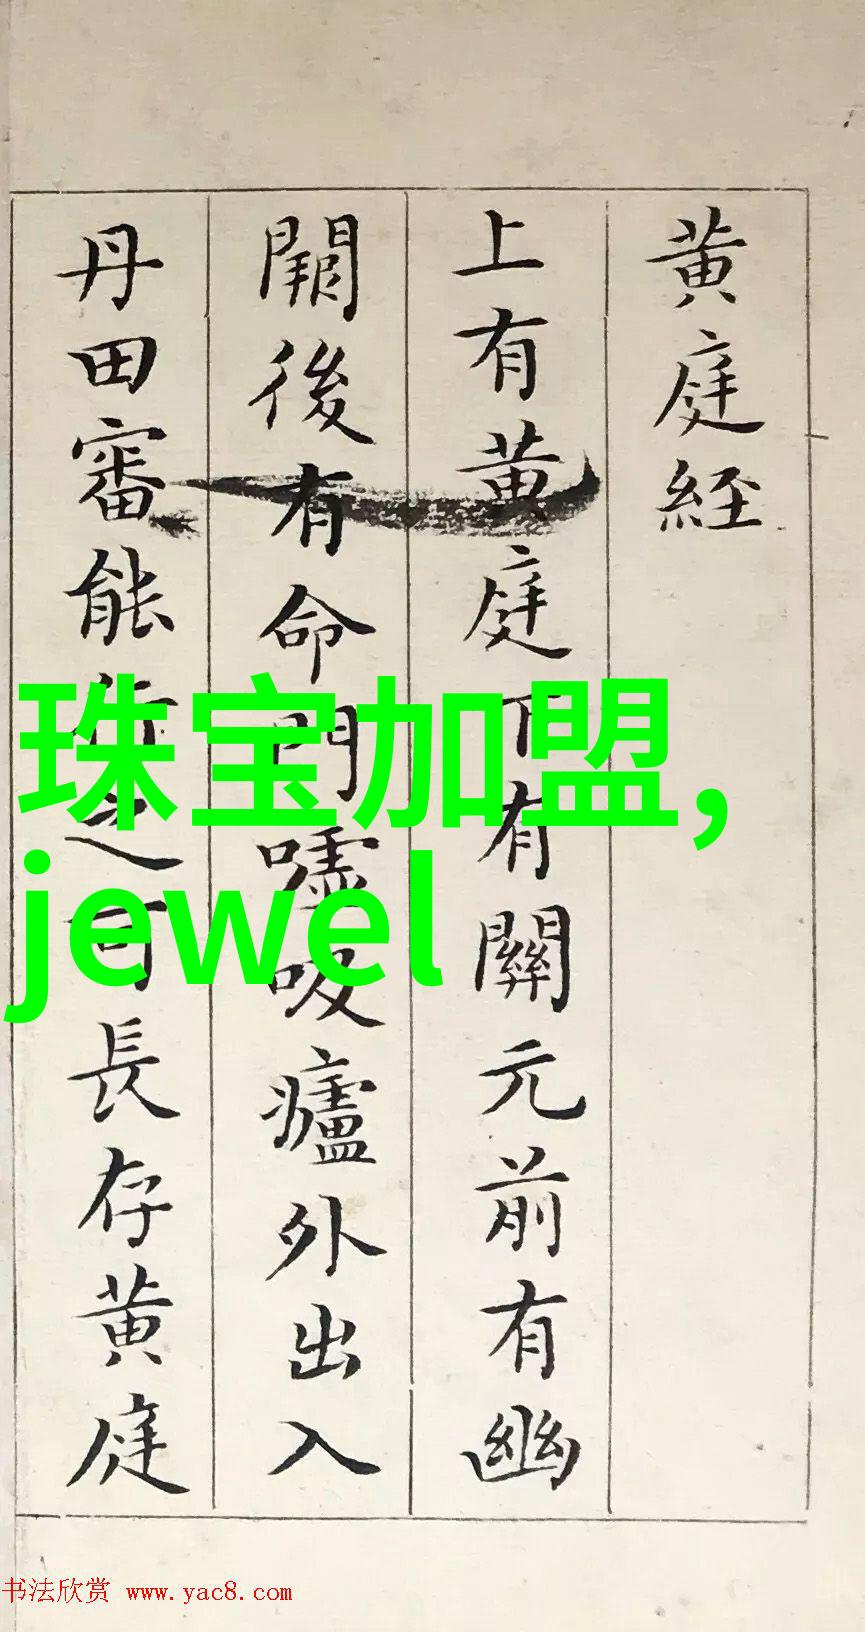 黄庭経
上有黄庭下有關元前有幽
闕後有命門噓吸廬外出入
丹田審能行之可長存黄庭
珠宝加盟,
jewel
书法欣赏 www.yac8.com